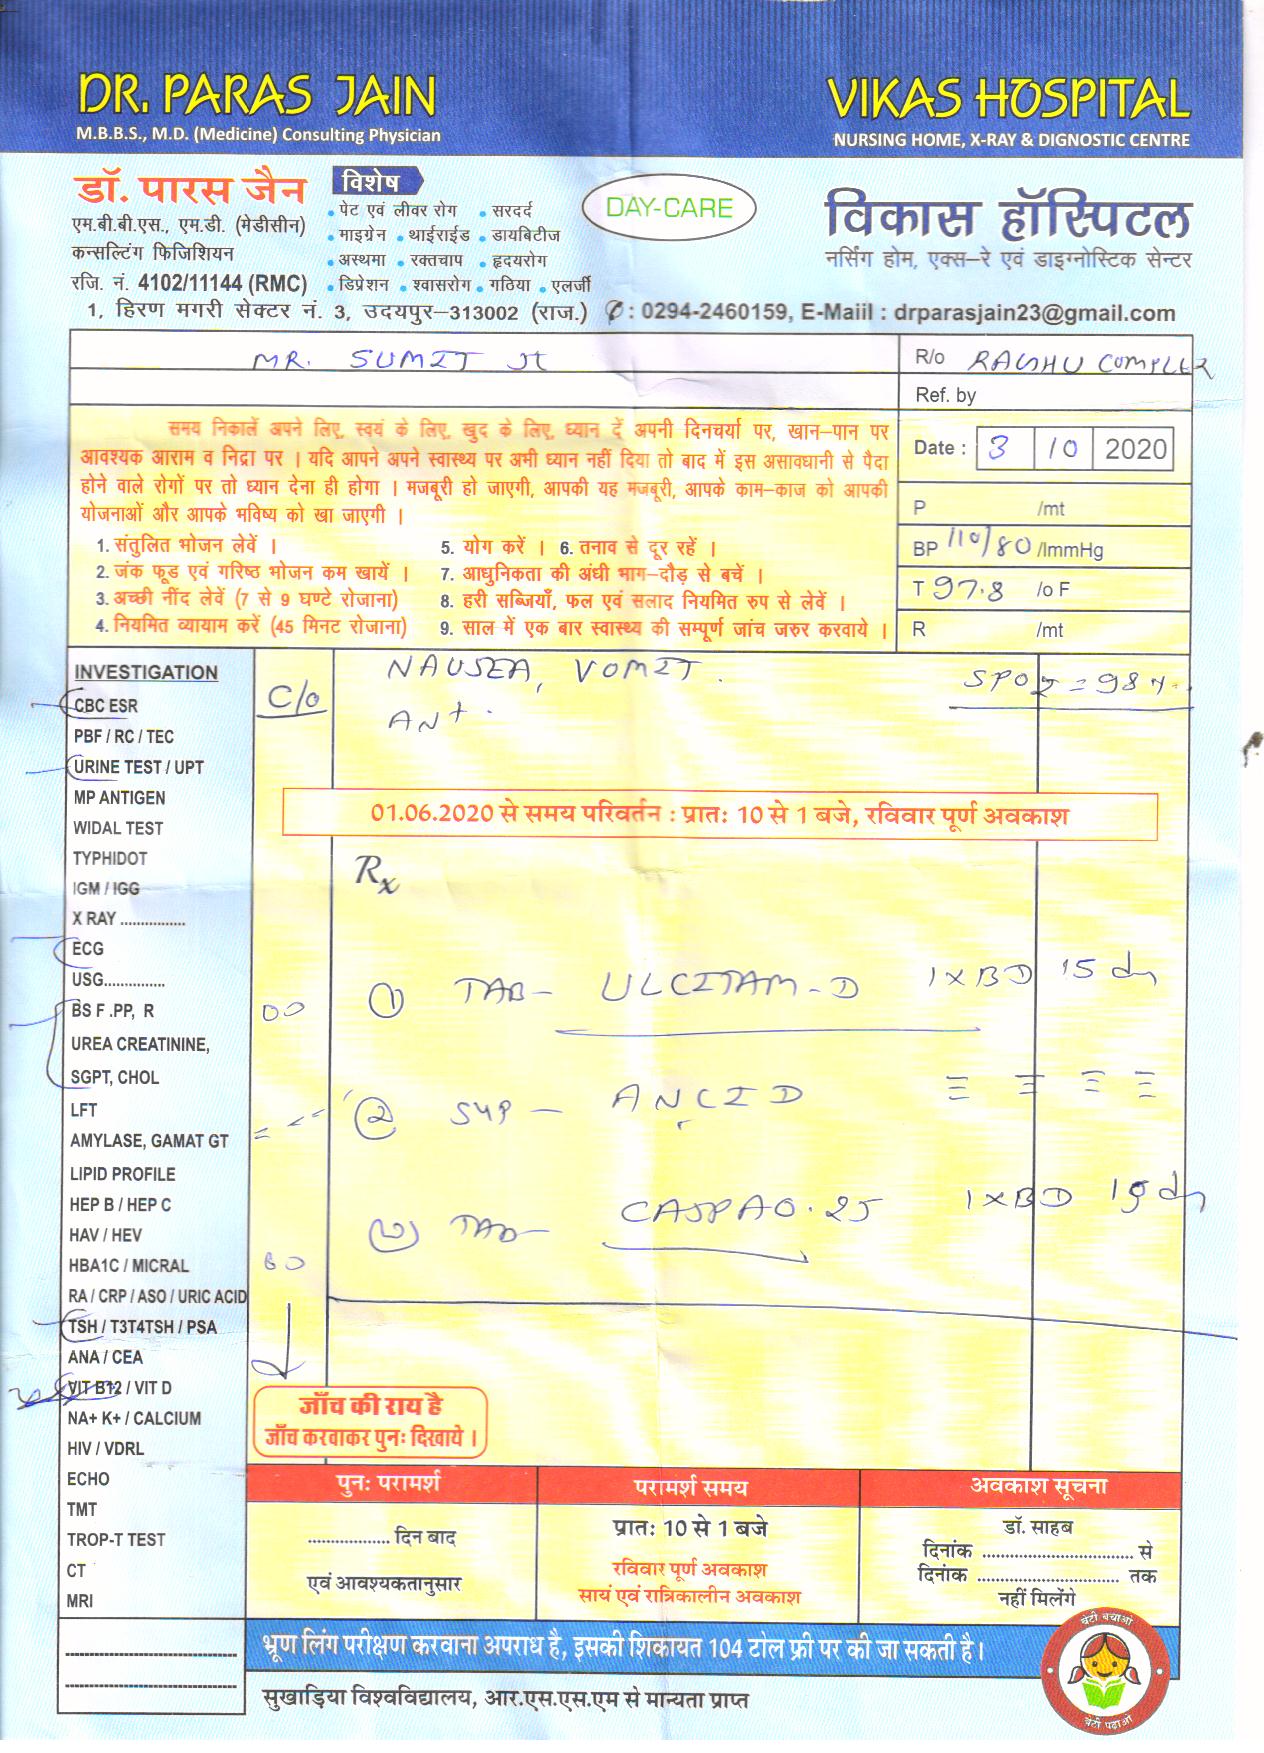 DR. PARAS JAIN
M.B.B.S., M.D. (Medicine) Consulting Physician
VIKAS HOSPITAL
NURSING HOME, X-RAY & DIGNOSTIC CENTRE
डॉ. पारस जैन
एम.बी.बी.एस., एम.डी. (मेडीसीन)
कन्सल्टिंग फिजिशियन
रजि. नं. 4102/11144 (RMC)
विशेष
• पेट एवं लीवर रोग • सरदर्द
• माइग्रेन • थाईराईड • डायबिटीज
• अस्थमा • रक्तचाप • हृदयरोग
• डिप्रेशन • श्वासरोग • गठिया • एलर्जी
DAY-CARE
विकास हॉस्पिटल
नर्सिंग होम, एक्स-रे एवं डाइग्नोस्टिक सेन्टर
1, हिरण मगरी सेक्टर नं. 3, उदयपुर-313002 (राज.) ✆: 0294-2460159, E-Maiil : drparasjain23@gmail.com
MR. SUMIT
R/o RAGHU COMPLEX
Ref. by
समय निकालें अपने लिए, स्वयं के लिए, खुद के लिए, ध्यान दें अपनी दिनचर्या पर, खान-पान पर
आवश्यक आराम व निद्रा पर । यदि आपने अपने स्वास्थ्य पर अभी ध्यान नहीं दिया तो बाद में इस असावधानी से पैदा
होने वाले रोगों पर तो ध्यान देना ही होगा । मजबूरी हो जाएगी, आपकी यह मजबूरी, आपके काम-काज को आपकी
योजनाओं और आपके भविष्य को खा जाएगी ।
1. संतुलित भोजन लेवें ।
2. जंक फूड एवं गरिष्ठ भोजन कम खायें ।
3. अच्छी नींद लेवें (7 से 9 घण्टे रोजाना)
4. नियमित व्यायाम करें (45 मिनट रोजाना)
5. योग करें । 6. तनाव से दूर रहें ।
7. आधुनिकता की अंधी भाग-दौड़ से बचें ।
8. हरी सब्जियाँ, फल एवं सलाद नियमित रुप से लेवें ।
9. साल में एक बार स्वास्थ्य की सम्पूर्ण जांच जरुर करवाये ।
Date : 3 10 2020
P /mt
BP 110/80 /lmmHg
T 97.8 /o F
R /mt
INVESTIGATION
CBC ESR
PBF / RC / TEC
URINE TEST / UPT
MP ANTIGEN
WIDAL TEST
TYPHIDOT
IGM / IGG
X RAY ................
ECG
USG...............
BS F .PP, R
UREA CREATININE,
SGPT, CHOL
LFT
AMYLASE, GAMAT GT
LIPID PROFILE
HEP B / HEP C
HAV / HEV
HBA1C / MICRAL
RA / CRP / ASO / URIC ACID
TSH / T3T4TSH / PSA
ANA / CEA
VIT B12 / VIT D
NA+ K+ / CALCIUM
HIV / VDRL
ECHO
TMT
TROP-T TEST
CT
MRI
C/o NAUSEA, VOMIT.
SPO2 = 98 %
01.06.2020 से समय परिवर्तन : प्रातः 10 से 1 बजे, रविवार पूर्ण अवकाश
Rx
① TAB- ULCITAM-D 1XBD 15
② SYP - ANCID
③ TAB- 1XBD
जाँच की राय है
जाँच करवाकर पुनः दिखाये ।
पुनः परामर्श
.................. दिन बाद
एवं आवश्यकतानुसार
परामर्श समय
प्रातः 10 से 1 बजे
रविवार पूर्ण अवकाश
सायं एवं रात्रिकालीन अवकाश
अवकाश सूचना
डॉ. साहब
दिनांक ................................ से
दिनांक .............................. तक
नहीं मिलेंगे
भ्रूण लिंग परीक्षण करवाना अपराध है, इसकी शिकायत 104 टोल फ्री पर की जा सकती है।
सुखाड़िया विश्वविद्यालय, आर.एस.एस.एम से मान्यता प्राप्त
बेटी बचाओ
बेटी पढाओ